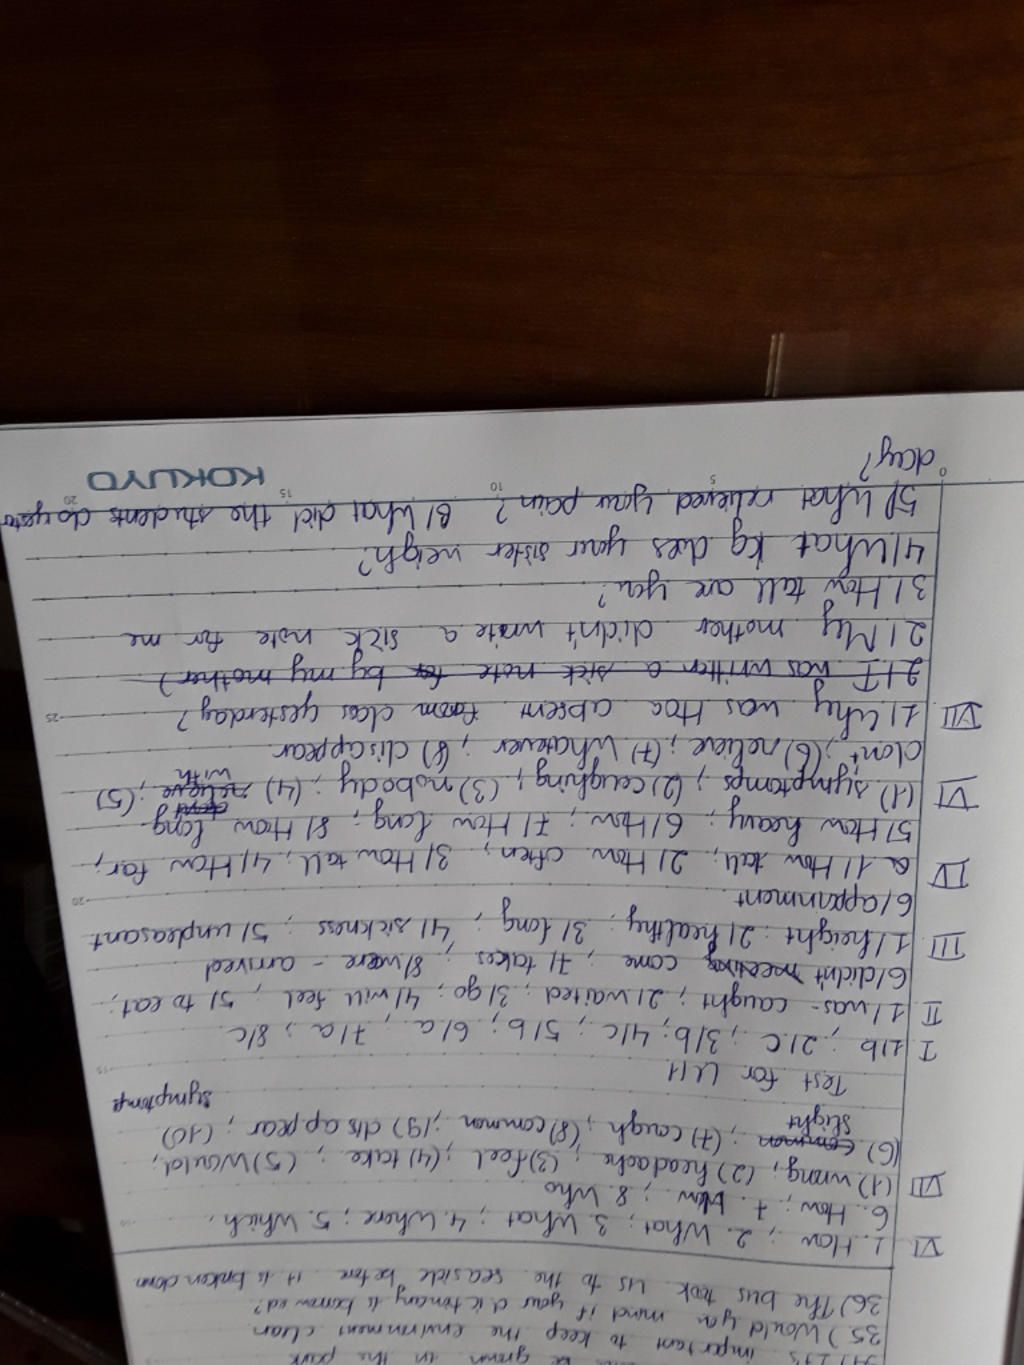 grown in the park
important to keep the environment clean
35.) Would you mind if your dictionary is borrowed?
36) The bus took us to the seaside before it is broken down
VI 1. How ; 2. What ; 3. What ; 4. Where ; 5. Which.
6. How ; 7. How ; 8. Who
VII (1) wrong ; (2) headache ; (3) feel ; (4) take ; (5) Would ;
(6) common slight ; (7) cough ; (8) common ; (9) disappear ; (10) symptoms
Test for U11
I 1/b ; 2/C ; 3/b ; 4/c ; 5/b ; 6/a ; 7/a ; 8/c
II 1/was - caught ; 2/waited ; 3/go ; 4/will feel ; 5/to eat ;
6/didn't come ; 7/takes ; 8/were - arrived
III 1/height ; 2/healthy ; 3/long ; 4/sickness ; 5/unpleasant
6/appoinment
IV 1/How tall ; 2/How often ; 3/How tall ; 4/How far ;
5/How heavy ; 6/How ; 7/How long ; 8/How long
VI (1) symptomps ; (2) coughing ; (3) nobody ; (4) relieve with ; (5)
dont ; (6) relieve ; (7) Whatever ; (8) disappear
VII 1/Why was Hoa absent from class yesterday?
2/I was written a sick note by my mother)
2/My mother didn't write a sick note for me
3/How tall are you?
4/What kg does your sister weigh?
5/What relieved your pain? 6/What did the students do yester
day?
KOKUYO
0 5 10 15 20
25
20
15
10